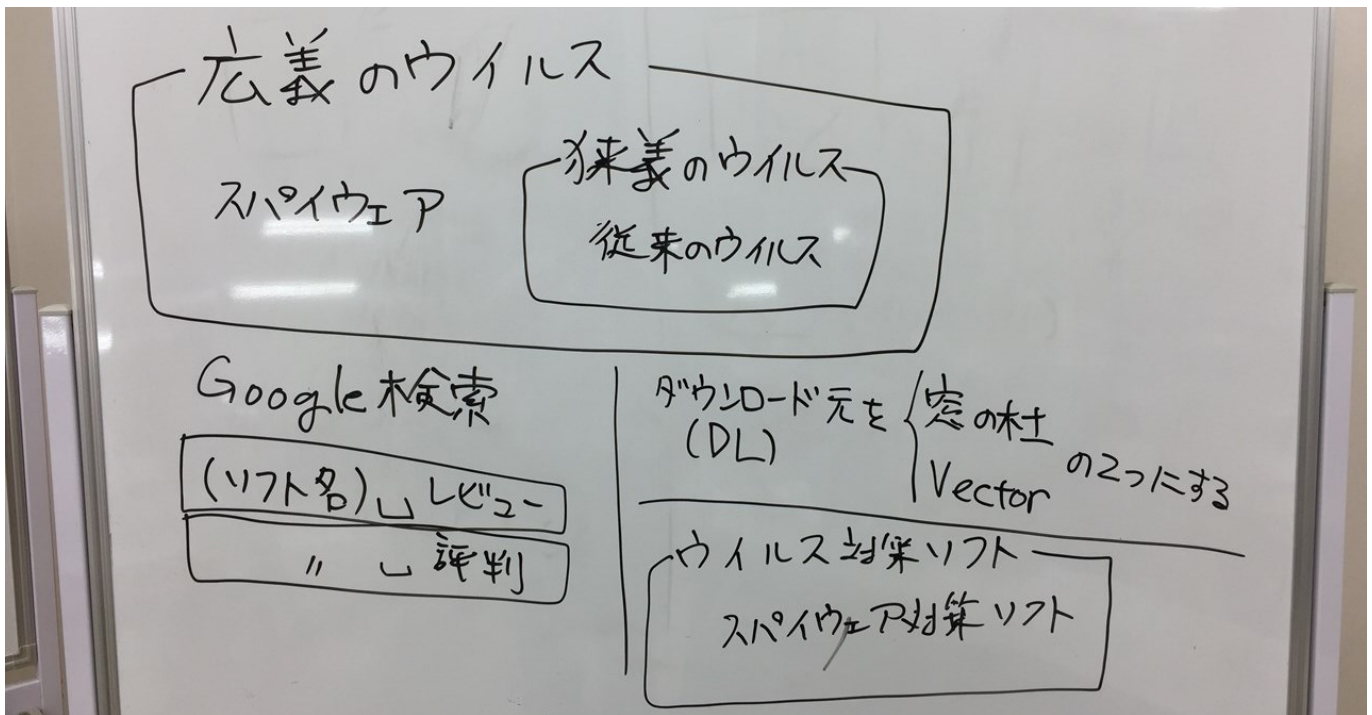 広義のウイルス
スパイウェア
狭義のウイルス
従来のウイルス
Google検索
(ソフト名)␣レビュー
〃␣評判
ダウンロード元を
(DL)
窓の杜
Vector
の2つにする
ウイルス対策ソフト
スパイウェア対策ソフト